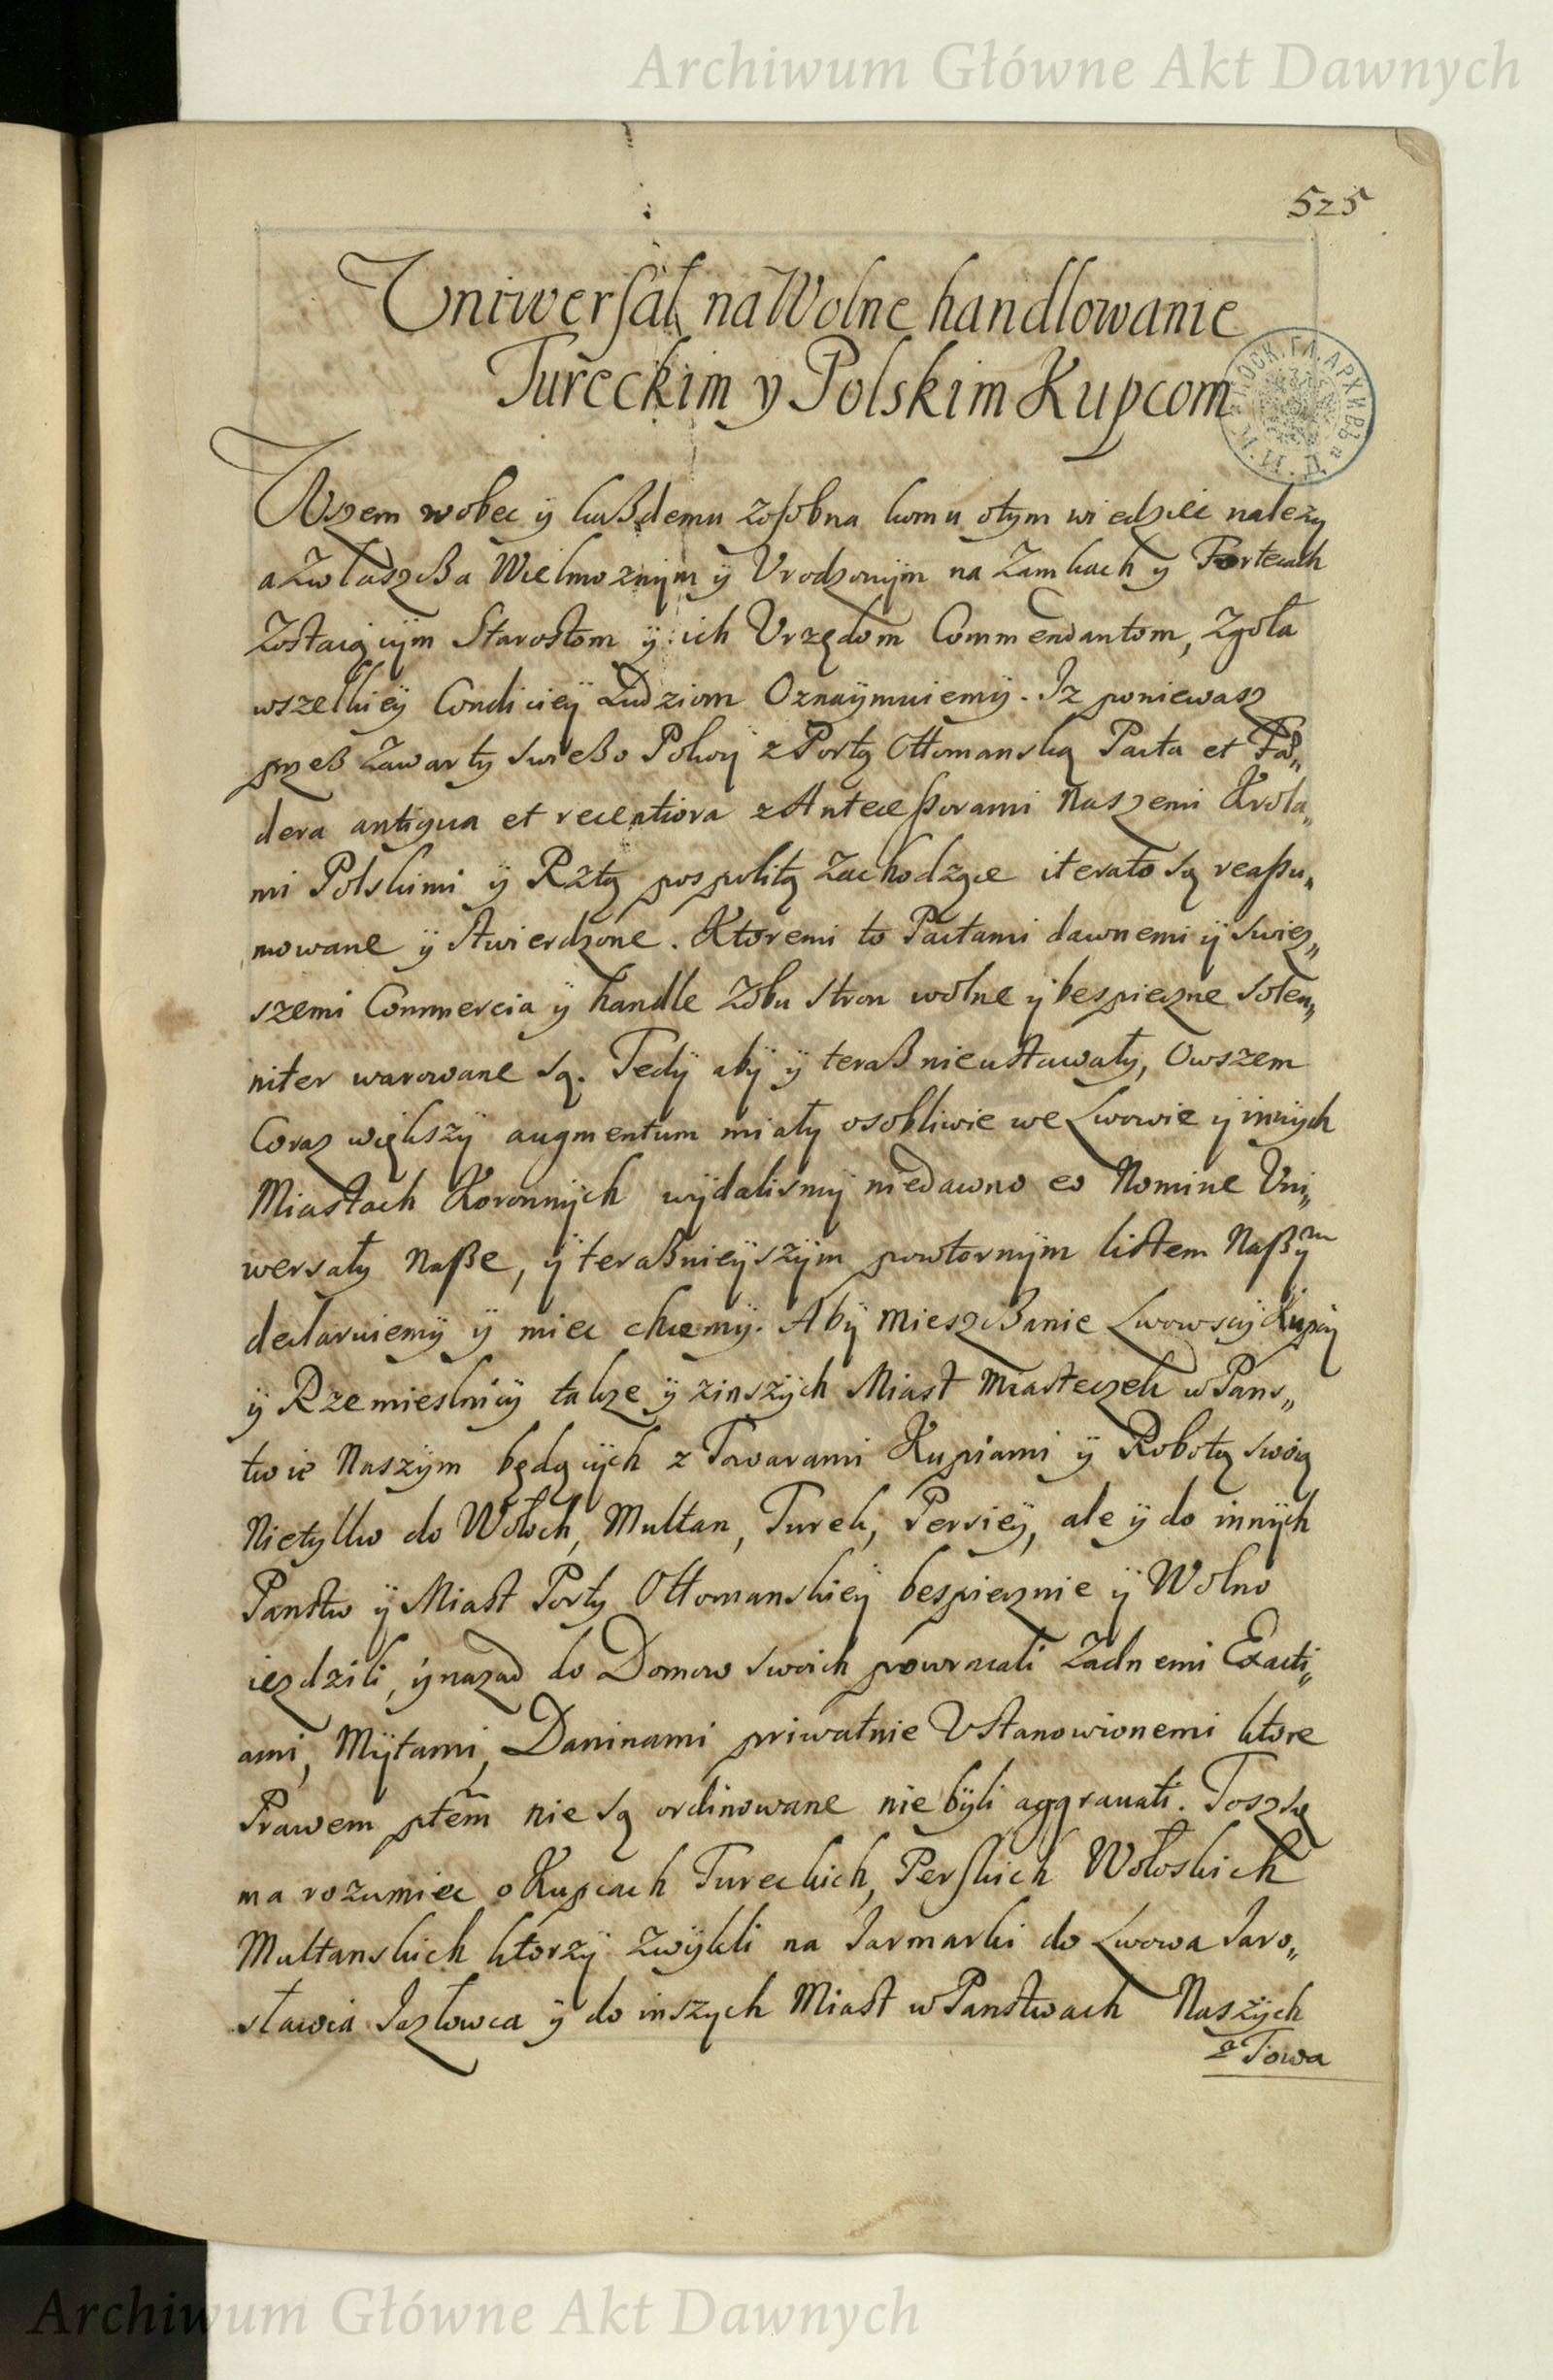 Archiwum Główne Akt Dawnych
525
Uniwersał na Wolne handlowanie
Tureckim y Polskim Kupcom
Wszem wobec ÿ kaßdemu zosobna komu otym wiedziec nalezy
a Zwłaszcßa Wielmoznÿm ÿ Vrodzonÿm na Zamkach y Fortecach
Zostaiącÿm Starostom ÿ ich Vrzędom Commendantom, zgoła
wszelkieÿ Condicieÿ Ludziom Oznaÿmuiemÿ. Iz poniewasz
przeß Zawarty swießo Pokoÿ z Portą Ottomanską Pacta et Fæ„
dera antiqua et recentiora z Antecessorami Naszemi Krola„
mi Polskimi ÿ Rzltą pospolitą Zachodzące iterato są reassu„
mowane ÿ stwierdzone. Ktoremi to Pactami dawnemi ÿ swiez„
szemi Commercia ÿ handle Zobu stron wolne ÿ bespieczne solen„
niter warowane są. Tedÿ abÿ ÿ teraß nieustawały, Owszem
Coraz większÿ augmentum miały osobliwie we Lwowie ÿ innÿch
Miastach Koronnÿch wÿdalismÿ niedawno eo Nomine Vni„
wersały Naße, ÿ teraßnieÿszÿm powtornÿm listem Naßÿm
declaruiemÿ ÿ miec chcemÿ. Abÿ Mieszcßanie Lwowscÿ Kupcy
ÿ Rzemieslnicÿ takze ÿ zinszÿch Miast Miasteczek w Pans„
twie Naszÿm będącÿch z Towarami Kupiami ÿ Robotą swoią
Nietylko do Wołoch, Multan, Turek, Persieÿ, ale ÿ do innÿch
Panstw ÿ Miast Porty Ottomanskieÿ bespiecznie ÿ Wolno
iezdzili, ÿ nazad do Domow swoich powracali Zadnemi Exacti„
ami, Mÿtami, Daninami priwatnie Vstanowionemi ktore
Prawem ptem nie są ordinowane nie bÿli aggrauati. Tosz się
ma rozumiec o Kupcach Tureckich, Perskich Wołoskich
Multanskich ktorzÿ zwÿkli na Jarmarki do Lwowa Jaro„
sławia Jazłowca ÿ do inszych Miast w Panstwach Naszÿch
z Towa
Archiwum Główne Akt Dawnych